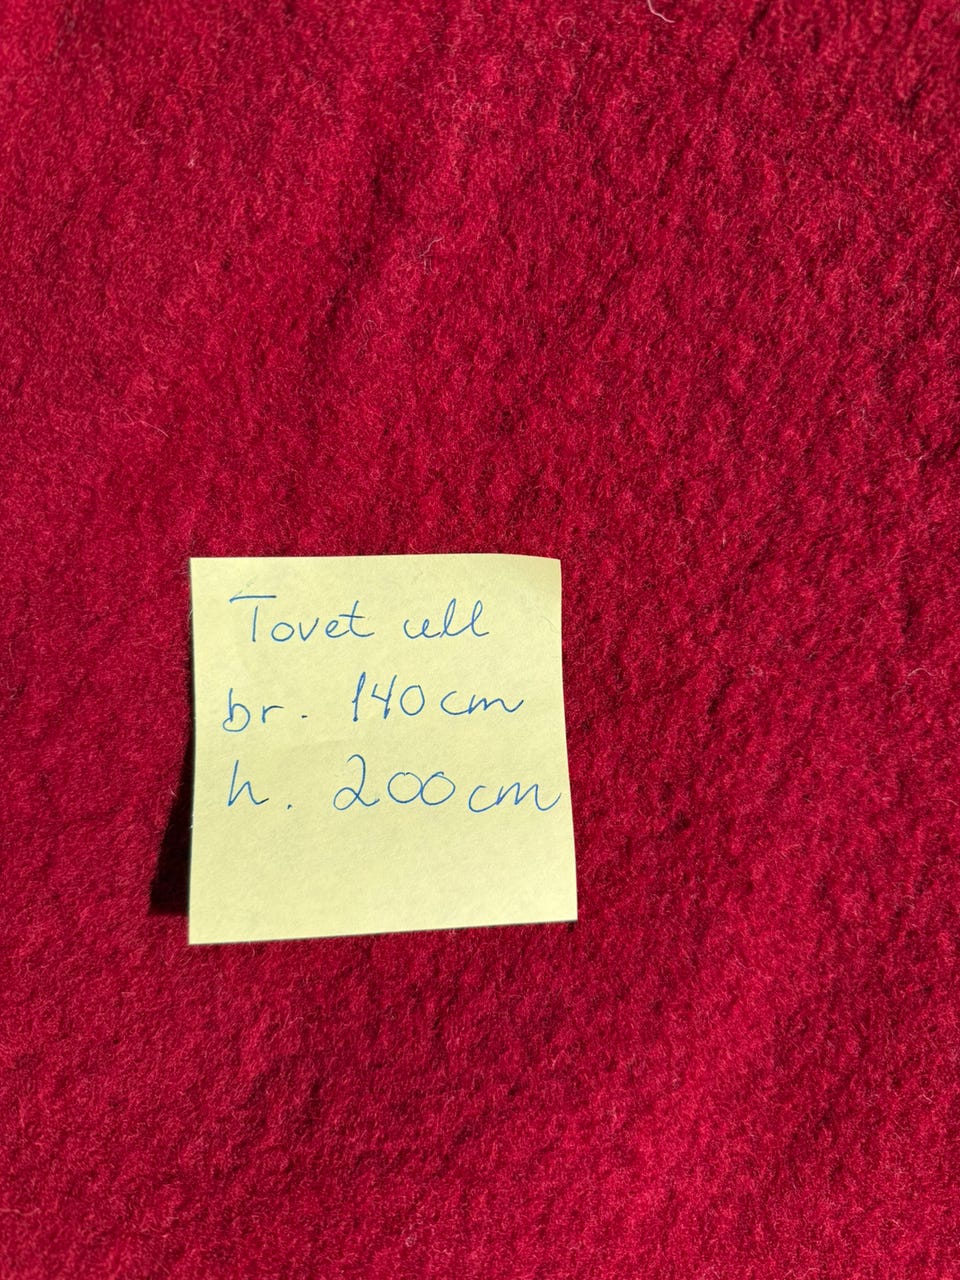 Tovet ull
br. 140 cm
h. 200 cm